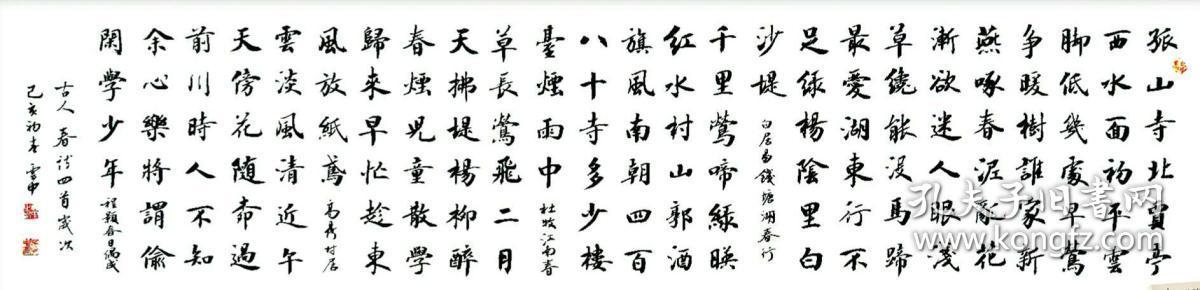 孤山寺北賈亭
西水面初平雲
脚低幾處早鶯
争暖樹誰家新
燕啄春泥亂花
漸欲迷人眼淺
草纔能没馬蹄
最愛湖東行不
足緑楊陰里白
沙堤 白居易錢塘湖春行
千里鶯啼緑暎
紅水村山郭酒
旗風南朝四百
八十寺多少樓
臺煙雨中 杜牧江南春
草長鶯飛二月
天拂堤楊柳醉
春煙兒童散學
歸來早忙趁東
風放紙鳶 高鼎村居
雲淡風清近午
天傍花隨柳過
前川時人不知
余心樂將謂偷
閑學少年 程顥春日偶成
古人春詩四首歲次
己亥初春雪中
孔夫子旧书网
www.kongfz.com